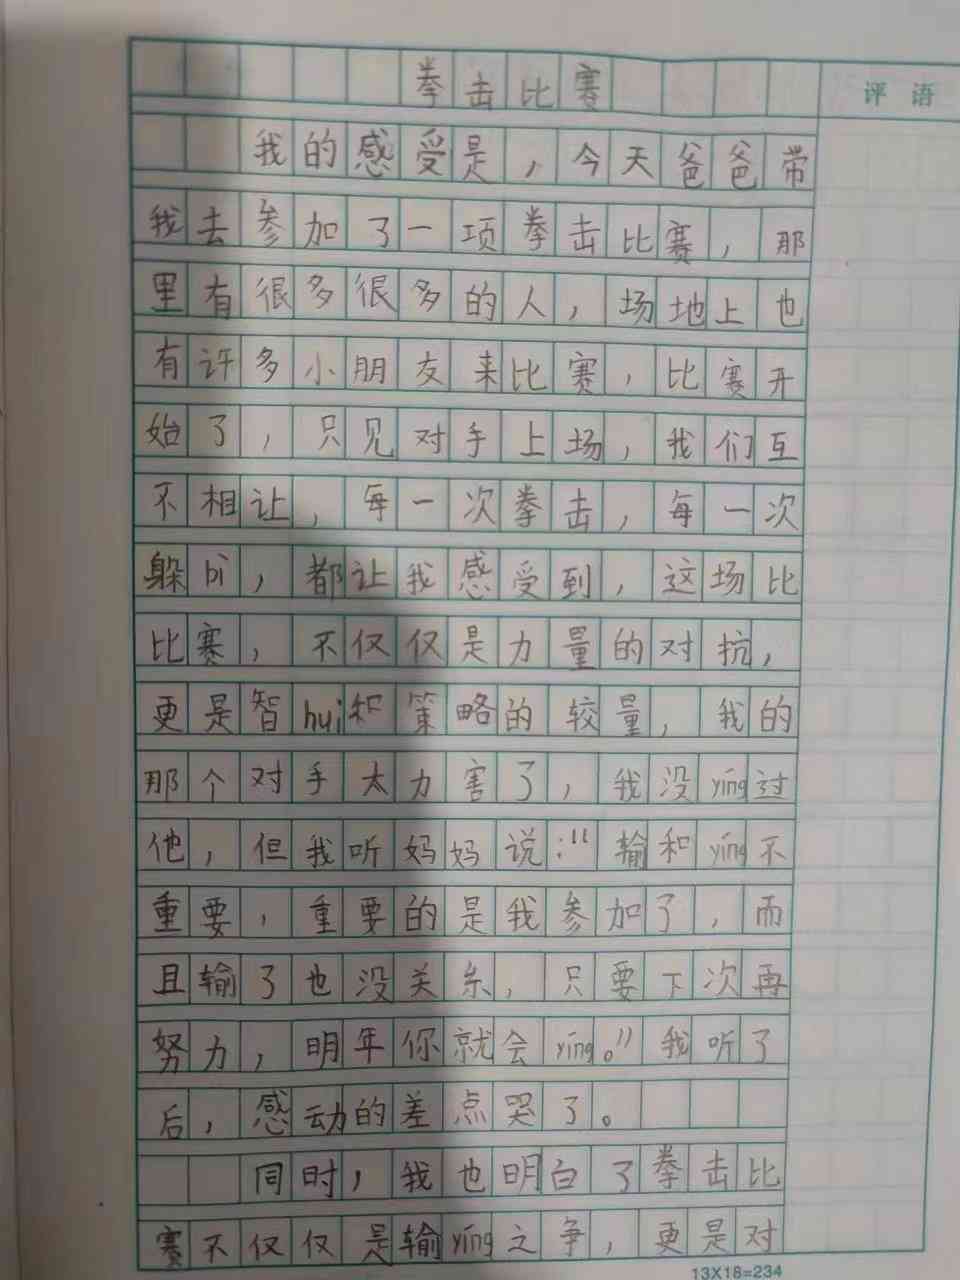 拳击比赛
评语
我的感受是，今天爸爸带
我去参加了一项拳击比赛，那
里有很多很多的人，场地上也
有许多小朋友来比赛，比赛开
始了，只见对手上场，我们互
不相让，每一次拳击，每一次
躲bì，都让我感受到，这场比
比赛，不仅仅是力量的对抗，
更是智huì和策略的较量，我的
那个对手太力害了，我没yíng过
他，但我听妈妈说："输和yíng不
重要，重要的是我参加了，而
且输了也没关系，只要下次再
努力，明年你就会yíng。"我听了
后，感动的差点哭了。
同时，我也明白了拳击比
赛不仅仅是输yíng之争，更是对
13X18=234